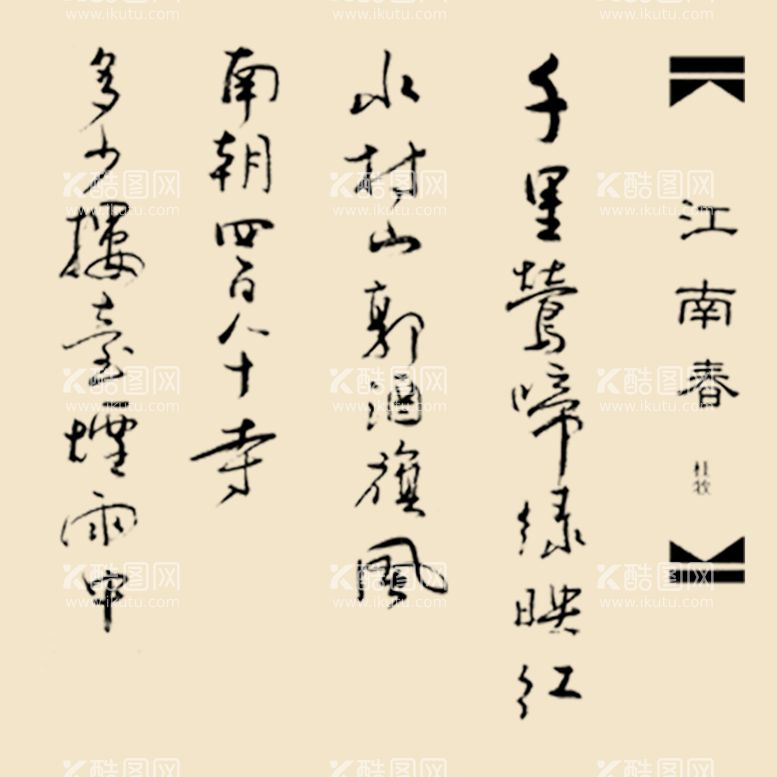 江南春
杜牧
千里鶯啼綠映紅
水村山郭酒旗風
南朝四百八十寺
多少樓臺煙雨中
酷图网
www.ikutu.com